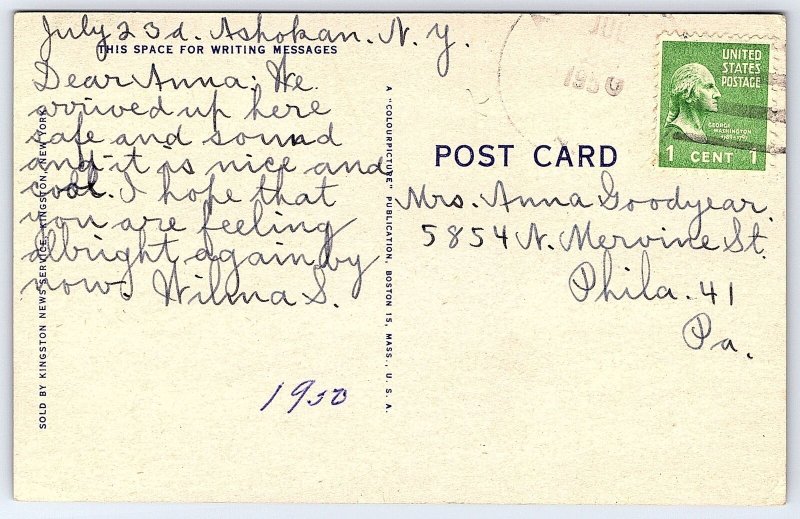 July 23d. Ashokan. N.Y.
THIS SPACE FOR WRITING MESSAGES
Dear Anna: We
arrived up here
safe and sound
and it is nice and
cool. I hope that
you are feeling
allright again by
now. Wilma S.
1950
SOLD BY KINGSTON NEWS SERVICE, KINGSTON, NEW YORK
A "COLOURPICTURE" PUBLICATION, BOSTON 15, MASS., U. S. A.
JUL
1950
UNITED
STATES
POSTAGE
GEORGE
WASHINGTON
1789-1797
1 CENT 1
POST CARD
Mrs. Anna Goodyear.
5854 N. Mervine St.
Phila. 41
Pa.